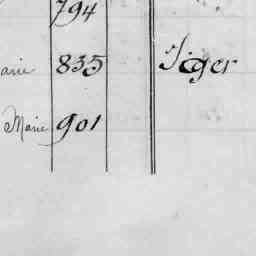 794
arie 835 Tiger
Marie 901